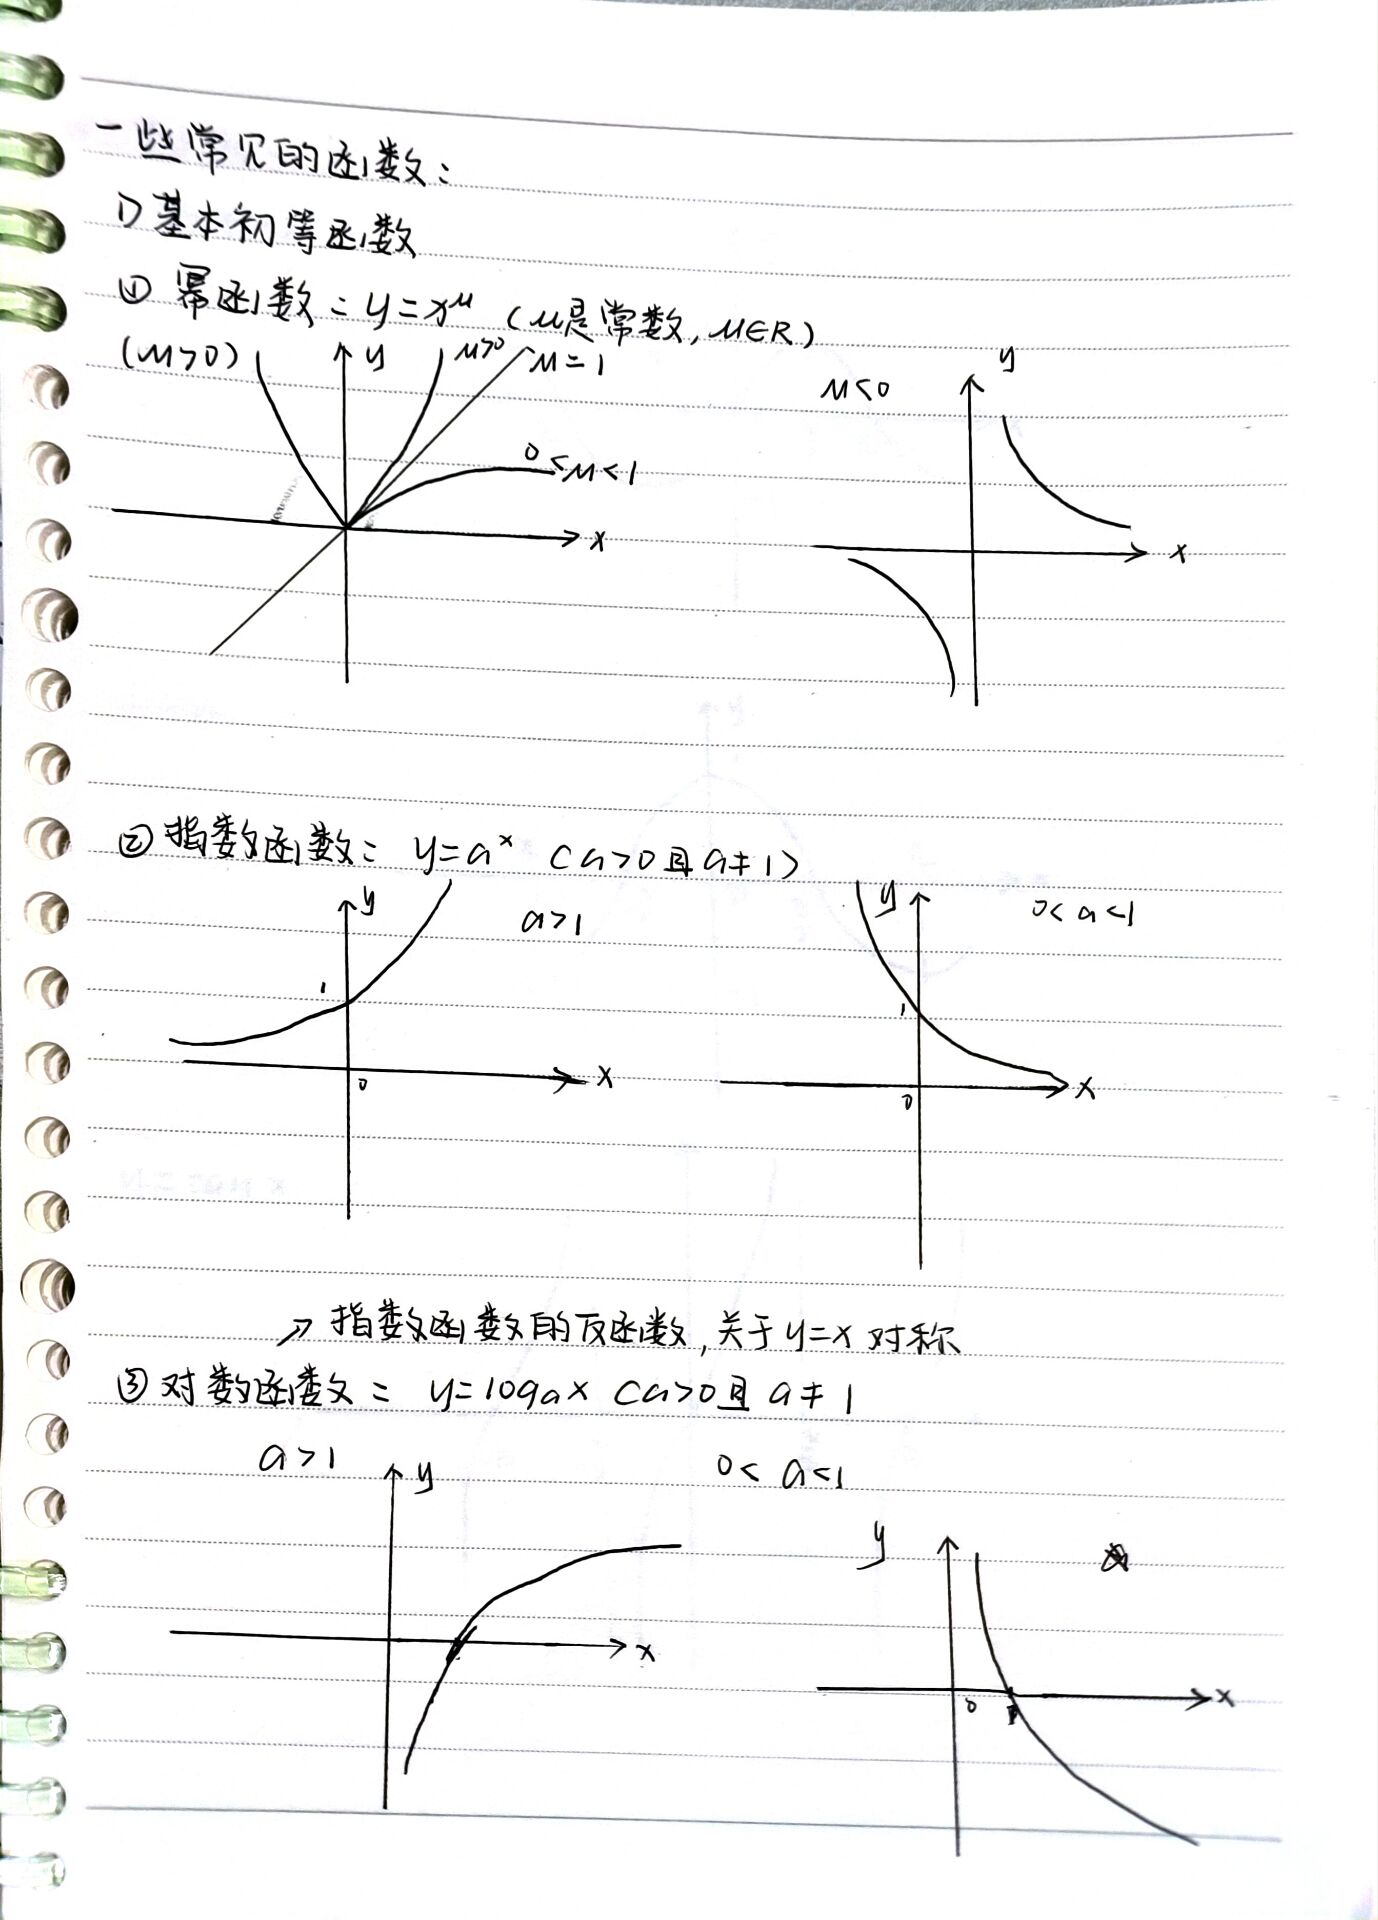 一些常见的函数:
1) 基本初等函数
① 幂函数: y=x^μ (μ是常数, μ∈R)
(μ>0) y μ>0 μ=1
μ<0 y
0<μ<1
x
x
② 指数函数: y=a^x (a>0且a≠1)
y a>1 y 0<a<1
1 1
0 x 0 x
→ 指数函数的反函数, 关于y=x对称
③ 对数函数: y=logax (a>0且a≠1
a>1 y 0<a<1
y
x
0 1 x